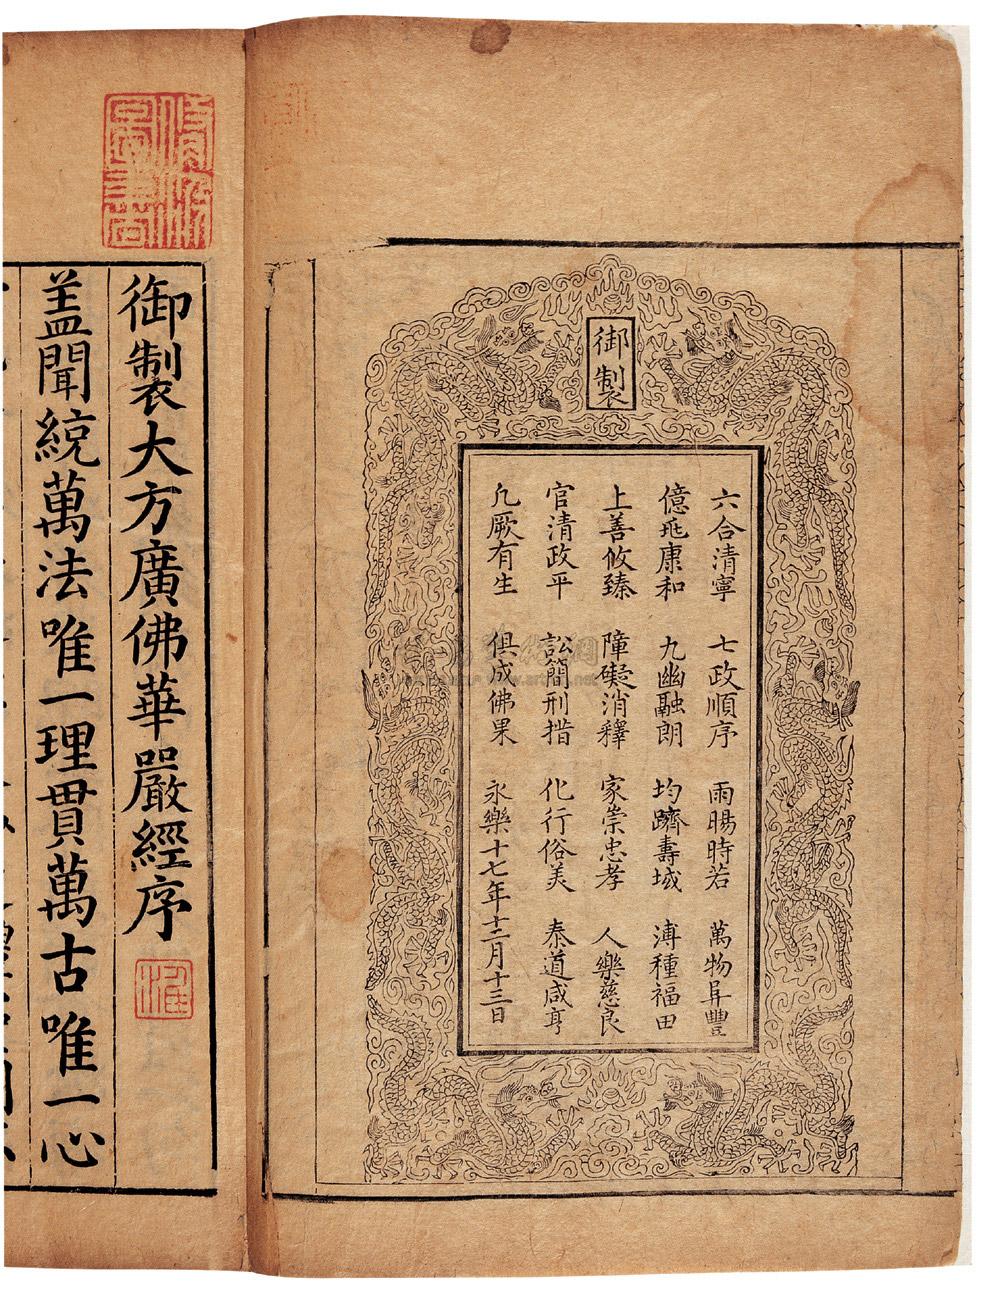 御製
六合清寧　七政順序　雨暘時若　萬物阜豐
億兆康和　九幽融朗　均躋壽域　溥種福田
上善攸臻　障礙消釋　家崇忠孝　人樂慈良
官清政平　訟簡刑措　化行俗美　泰道咸亨
凡厥有生　俱成佛果　永樂十七年十二月十三日
御製大方廣佛華嚴經序
蓋聞統萬法唯一理貫萬古唯一心